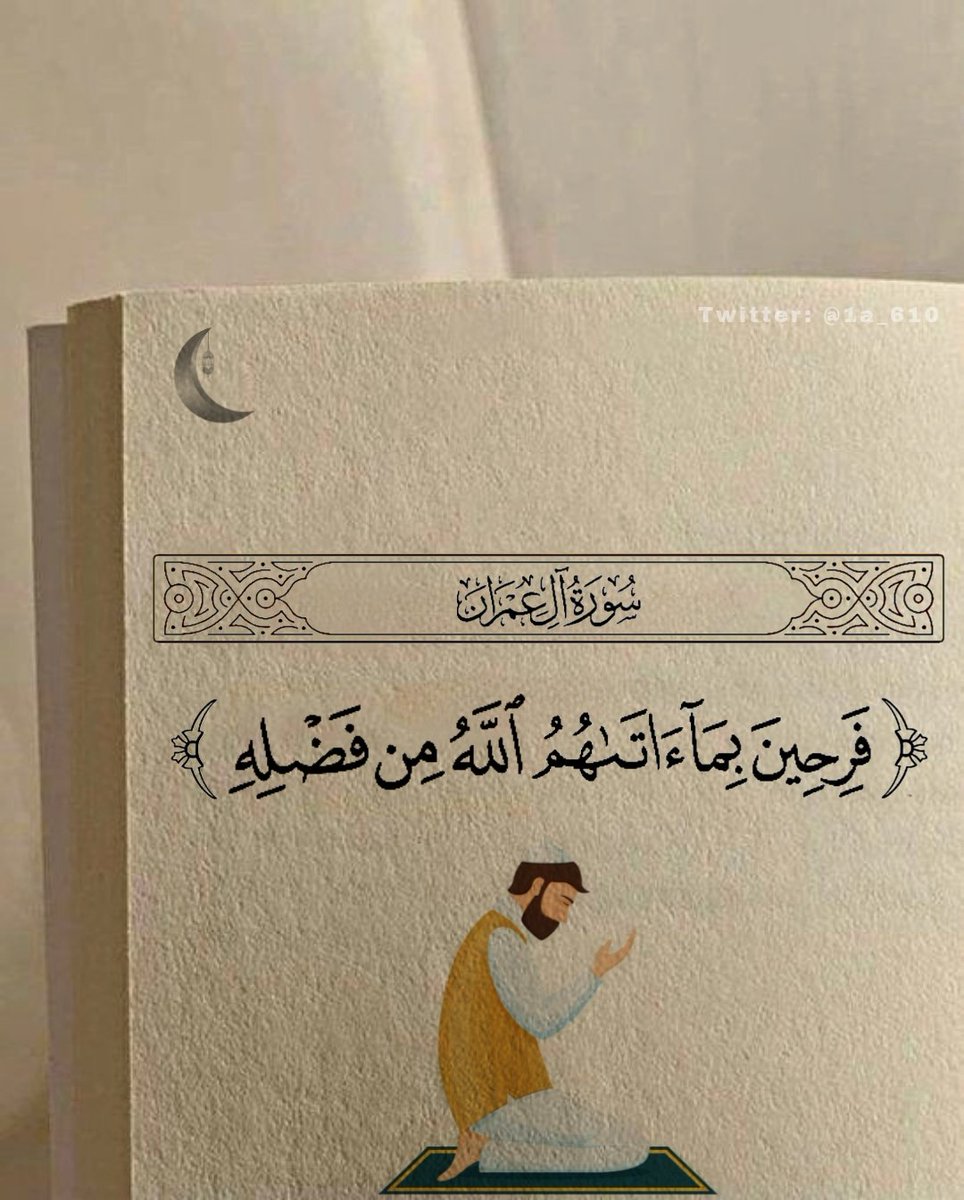 Twitter: @1a_610
سُورَةُ آلِ عِمْرَانَ
﴿ فَرِحِينَ بِمَآ ءَاتَىٰهُمُ ٱللَّهُ مِن فَضْلِهِ ﴾